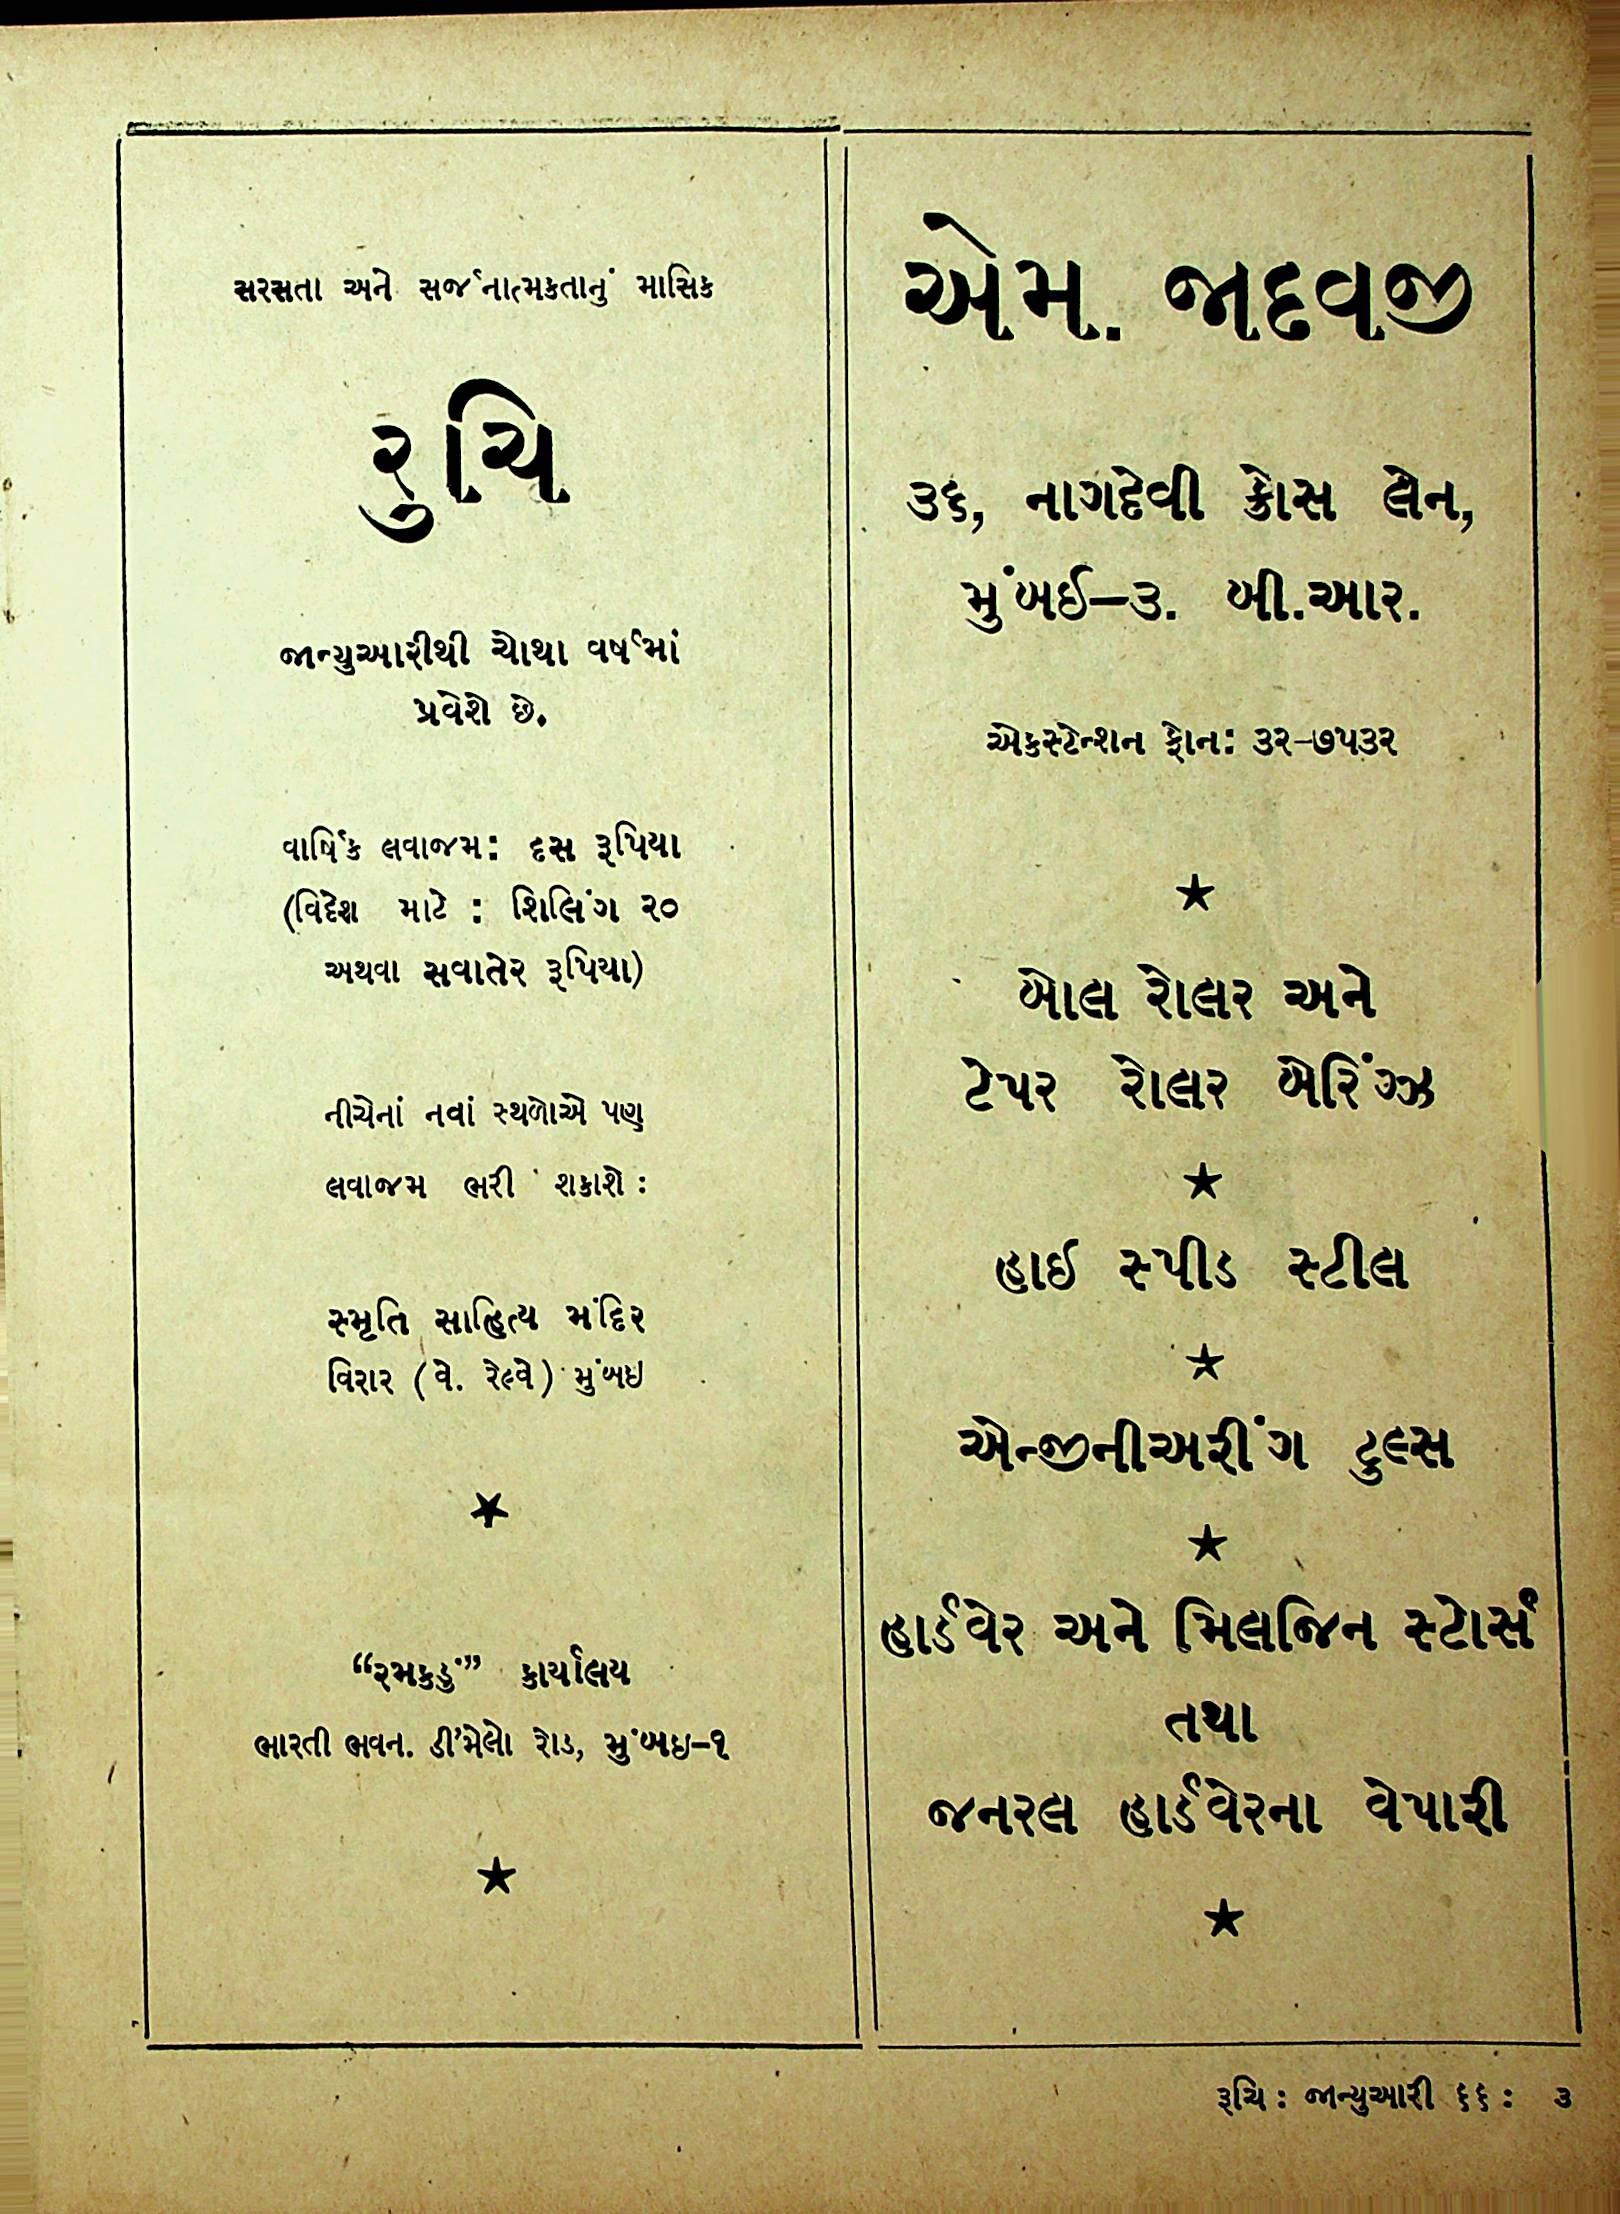 સરસતા અને સર્જનાત્મકતાનું માસિક
રુચિ
જાન્યુઆરીથી ચોથા વર્ષમાં
પ્રવેશે છે.
વાર્ષિક લવાજમ: દસ રૂપિયા
(વિદેશ માટે : શિલિંગ ૨૦
અથવા સવાતેર રૂપિયા)
નીચેનાં નવાં સ્થળોએ પણ
લવાજમ ભરી શકાશે :
સ્મૃતિ સાહિત્ય મંદિર
વિરાર (વે. રેલ્વે) મુંબઇ
★
“રમકડું” કાર્યાલય
ભારતી ભવન. ડી'મેલો રોડ, મુંબઇ-૧
★
એમ. જાદવજી
૩૬, નાગદેવી ક્રોસ લેન,
મુંબઈ-૩. બી.આર.
એકસ્ટેન્શન ફોન: ૩૨-૭૫૩૨
★
બોલ રોલર અને
ટેપર રોલર બેરિંગ્ઝ
★
હાઈ સ્પીડ સ્ટીલ
★
એન્જીનીઅરીંગ ટુલ્સ
★
હાર્ડવેર અને મિલજિન સ્ટોર્સ
તથા
જનરલ હાર્ડવેરના વેપારી
★
રૂચિ : જાન્યુઆરી ૬૬ : ૩